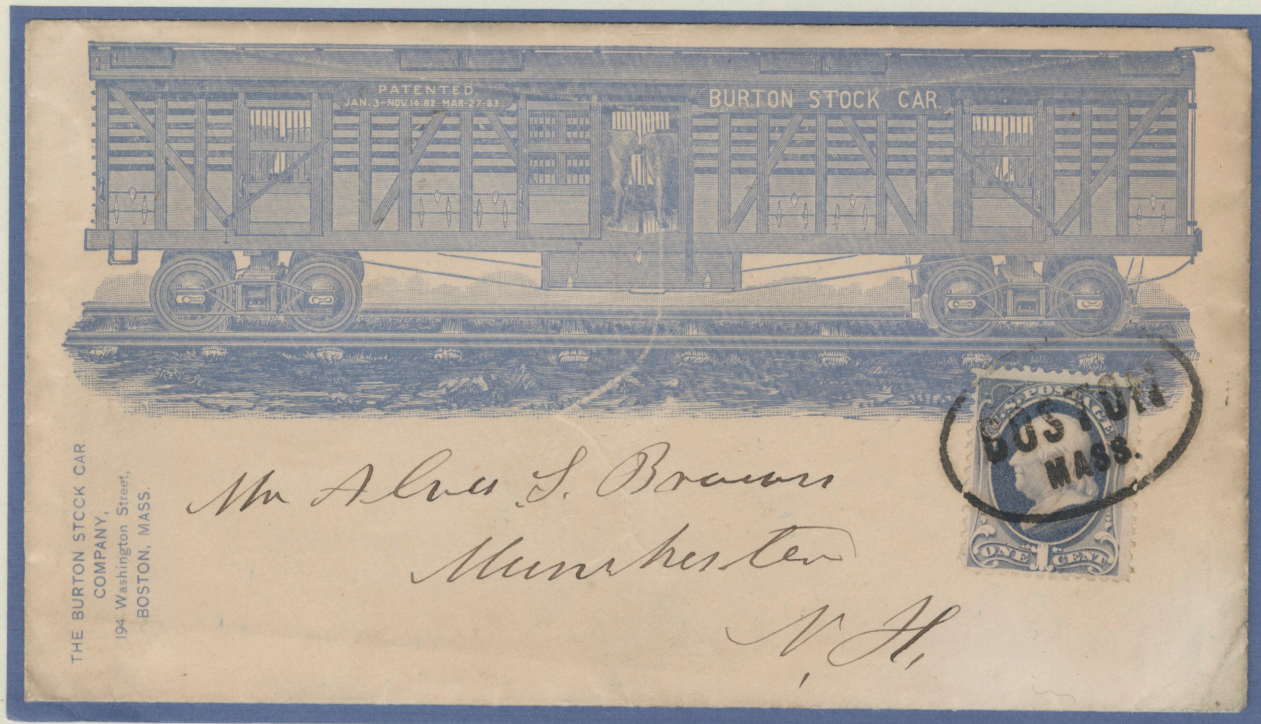 PATENTED.
JAN. 3-NOV. 14. 82 MAR-27-83
BURTON STOCK CAR.
THE BURTON STOCK CAR
COMPANY,
194 Washington Street,
BOSTON, MASS.
U.S. POSTAGE
BOSTON
MASS.
ONE 1 CENT
Mr S. Brown
Manchester
N. H.